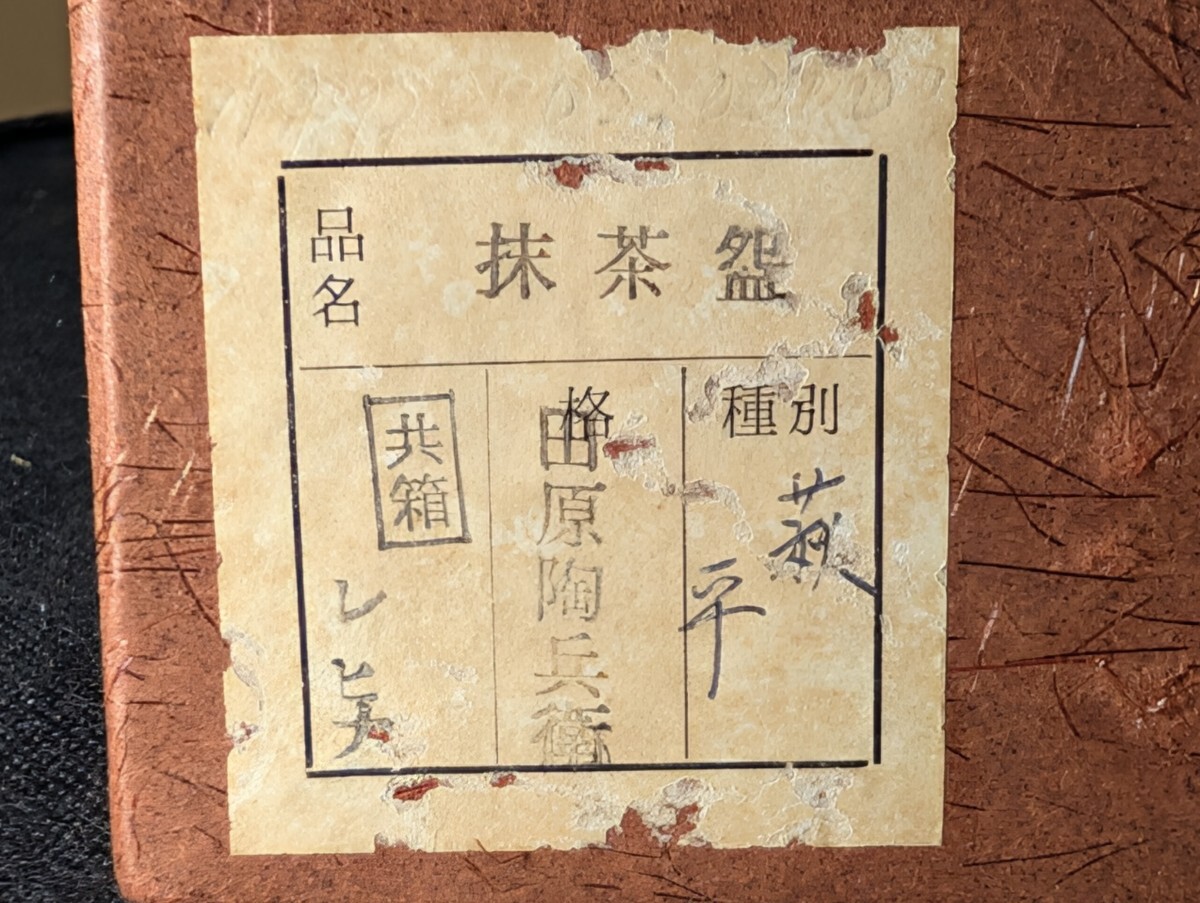 品名
抹茶盌
種別
萩
平
格
田原陶兵衛
共箱
レ